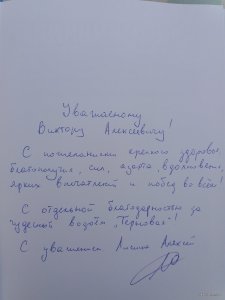 Уважаемому
Виктору Алексеевичу!
С пожеланиями крепкого здоровья,
благополучия, сил, азарта, вдохновения,
ярких впечатлений и побед во всём!
С отдельной благодарностью за
чудесной водоём „Терновая"!
С уважением Алексей